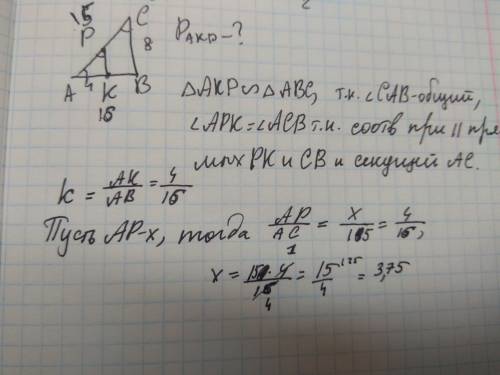 15
P C
8
A 4 K B
16
P_AKP - ?
△AKP ∾ △ABC, т.к. ∠CAB - общий,
∠APK = ∠ACB т.к. соотв при || пря
мых PK и CB и секущий AC.
k = AK/AB = 4/16
Пусть AP - x, тогда AP/AC = x/15 = 4/16,
x = 15 · 4/16 = 15/4 = 3,75